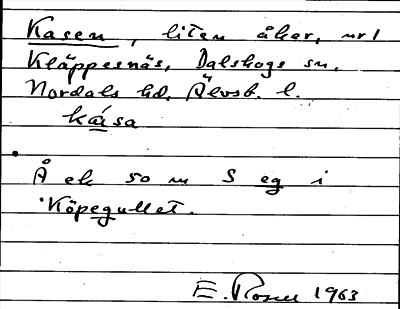 Kasen, liten åker, nr 1
Kläppesnäs, Dalskogs sn,
Nordals hd. Älvsb. l.
kása
Å ek so m S eg i
Köpegullet.
E. Rosell 1963